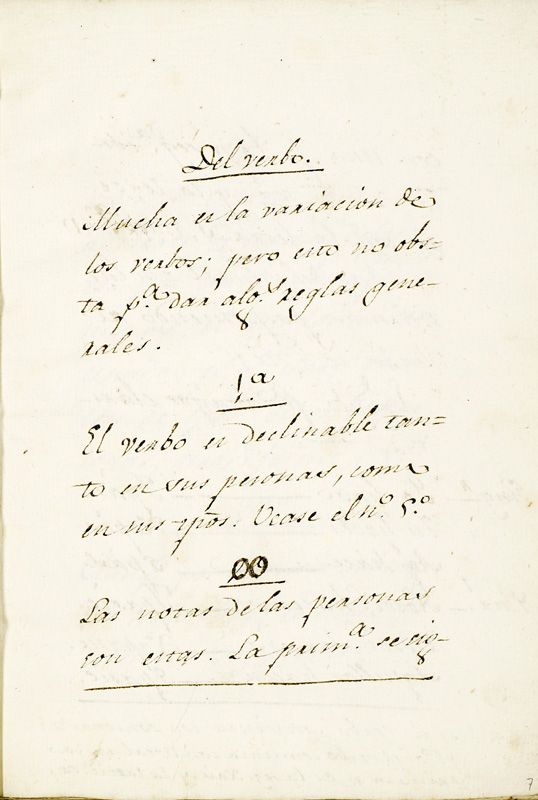 Del verbo.
Mucha es la variacion de
los verbos; pero esto no obs=
ta p.ª dar alg.s reglas gene-
rales.
1.ª
El verbo es declinable tan=
to en sus personas, como
en sus tpõs. Vease el n.º 5.º
00
Las notas de las personas
son estas. La prim.ª se sig-
7